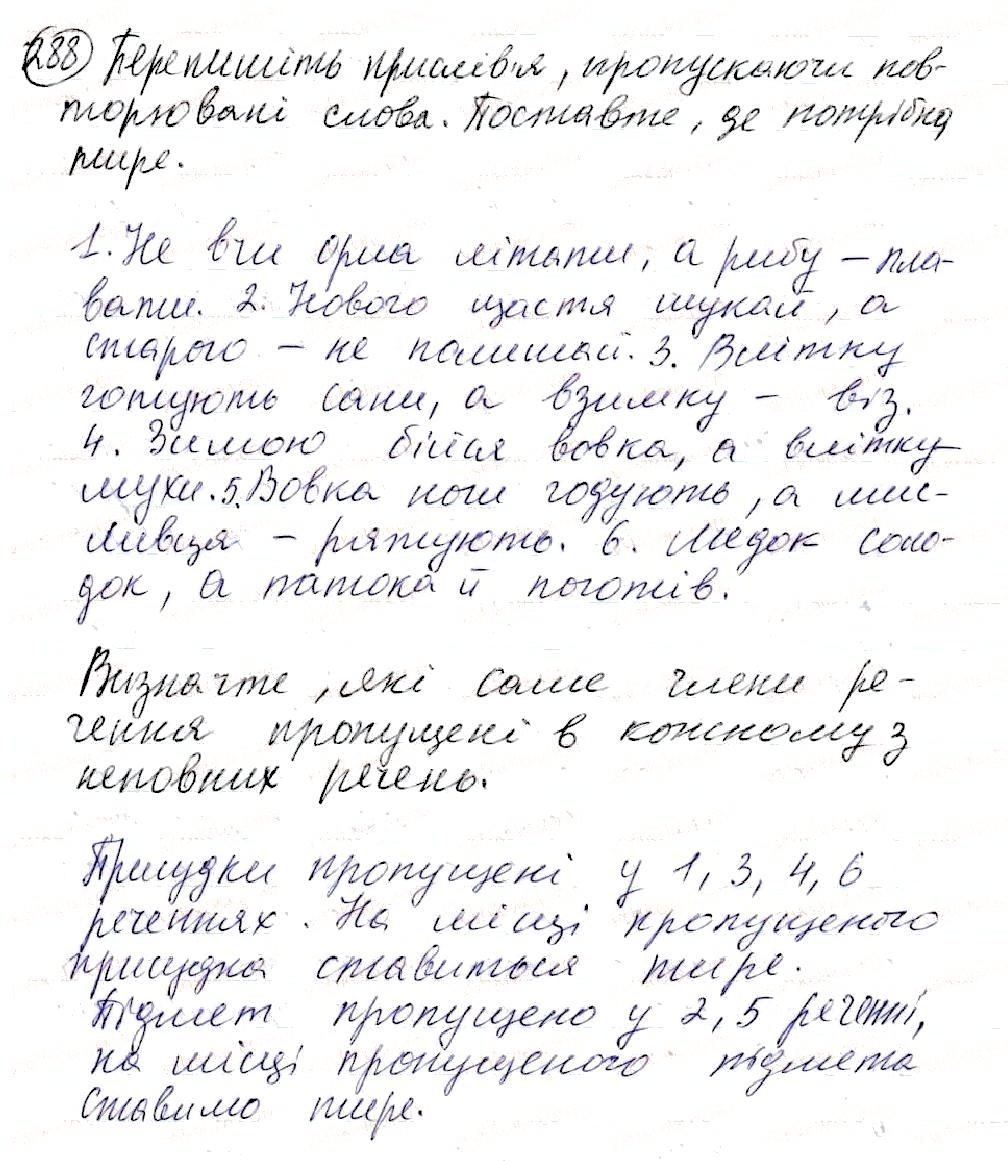 288 Перепишіть прислів'я, пропускаючи пов-
торювані слова. Поставте, де потрібно
тире.
1. Не вчи орла літати, а рибу – пла-
вати. 2. Нового щастя шукай, а
старого – не полишай. 3. Влітку
готують сани, а взимку – віз.
4. Зимою бійся вовка, а влітку
мухи. 5. Вовка ноги годують, а мис-
ливця – ряжують. 6. Медок соло-
док, а патока й поготів.
Визначте, які саме члени ре-
чення пропущені в кожному з
неповних речень.
Присудки пропущені у 1, 3, 4, 6
реченнях. На місці пропущеного
присудка ставиться тире.
Підмет пропущено у 2, 5 реченні,
на місці пропущеного підмета
ставимо тире.